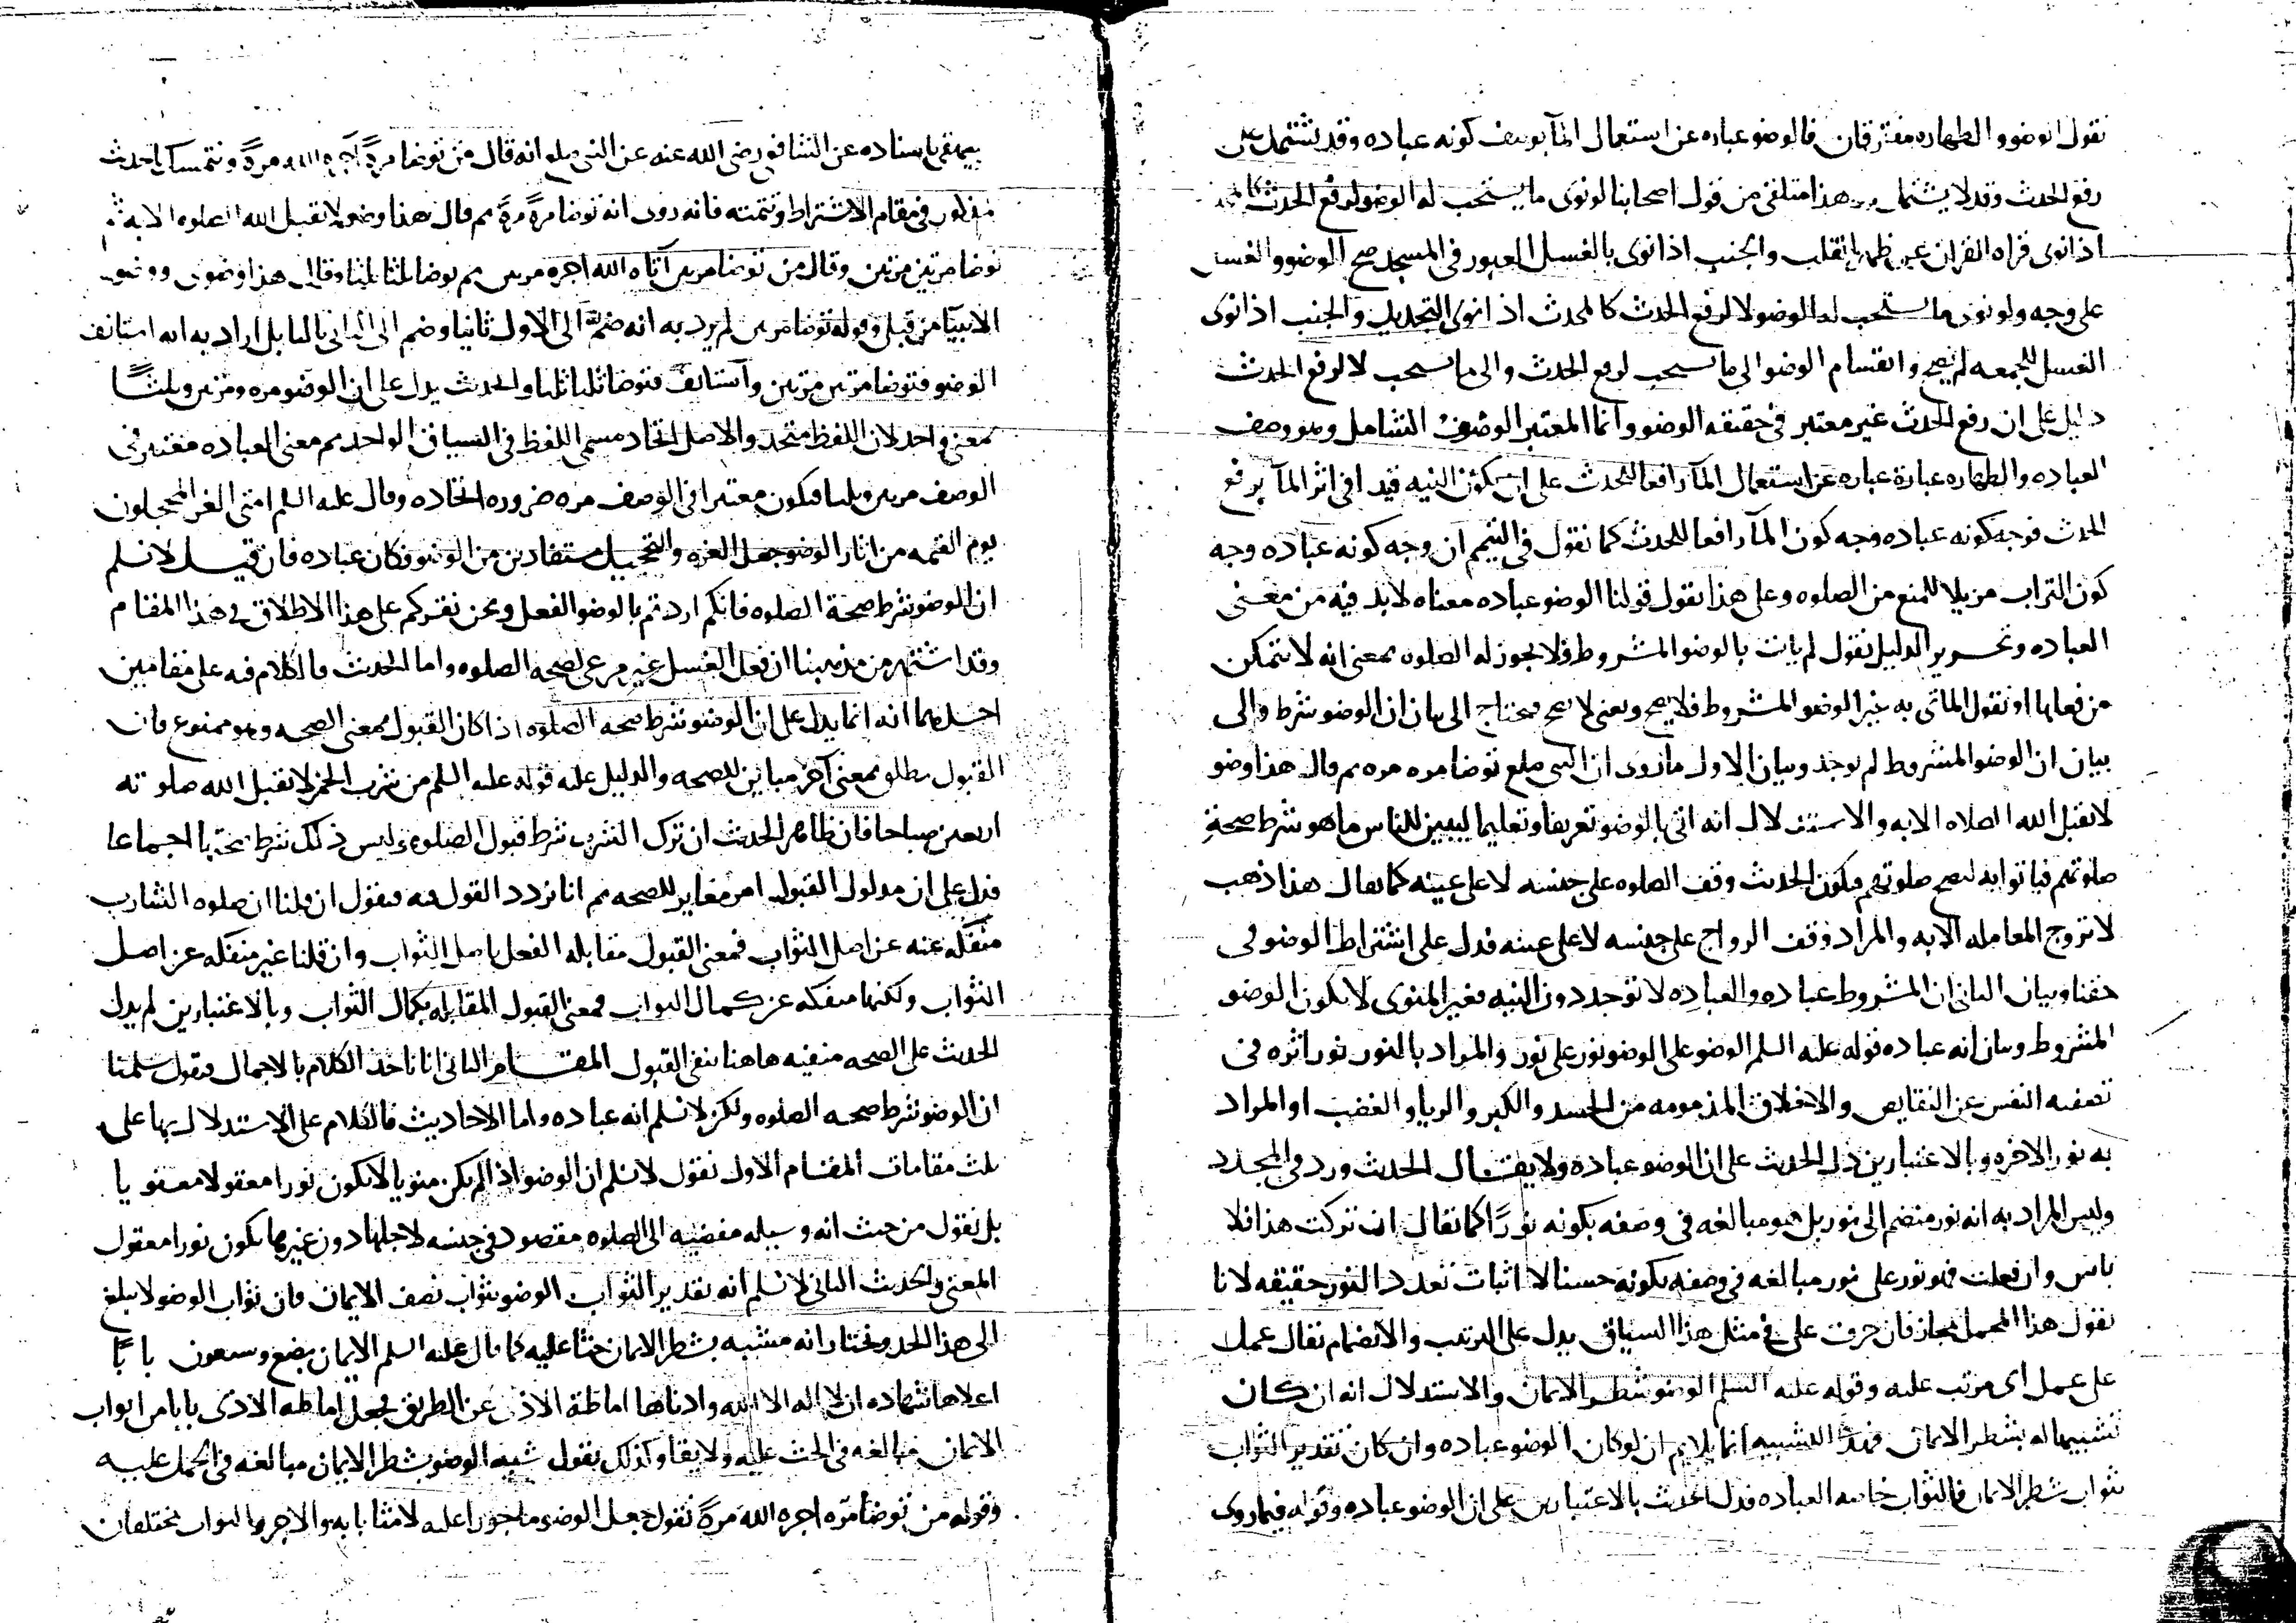 نقول الوضوو الطهاره مفترقان فالوضو عباره عن استعمال المآ بوصف كونه عباده وقد يشتمل على
رفع الحدث وقد لا يشتمل هذا متلقى من قول اصحابنا لو نوى ما يستحب له الوضو لرفع الحدث كما
اذا نوى قراه القران عن ظهر القلب والجنب اذا نوى بالغسل العبور فى المسجد صح الوضوو الغسل
على وجه ولو نوى ما يستحب له الوضو لا لرفع الحدث كالمحدث اذا نوى التجديد والجنب اذا نوى
الغسل للجمعه لم يصح وانقسام الوضو الى ما يستحب لرفع الحدث والى ما يستحب لا لرفع الحدث
دليل على ان رفع الحدث غير معتبر فى حقيقه الوضو وانما المعتبر الوصف الشامل وهو وصف
العباده والطهاره عبارة عباره عن استعمال المآ رافعا للحدث على ان يكون النيه قيدا فى اثر المآ برفع
الحدث فوجه كونه عباده وجه كون المآ رافعا للحدث كما نقول فى التيمم ان وجه كونه عباده وجه
كون التراب مزيلا للمنع من الصلوه وعلى هذا نقول قولنا الوضو عباده معناه لابد فيه من معنى
العباده وتحرير الدليل نقول لم يات بالوضو المشروط فلا يجوز له الصلوه بمعنى انه لا يتمكن
من فعلها او نقول الماتى به غير الوضو المشروط فلا يصح ويعنى لا يصح فيحتاج الى بيان ان الوضو شرط والى
بيان ان الوضو المشروط لم يوجد وبيان الاول ما روى ان النبى صلع توضا مره مره ثم قال هذا وضو
لا يقبل الله الصلاه الا به والاستدلال انه اتى بالوضو تعريفا وتعليما ليبين للناس ما هو شرط صحة
صلوتهم فياتوا به لتصح صلوتهم فيكون الحدث وقف الصلوه على جنسه لا على عينه كما يقال هذا ذهب
لا تروج المعامله الا به والمراد وقف الرواج على جنسه لا على عينه فدل على اشتراط الوضو فى
حقنا وبيان الثانى ان المشروط عباده والعباده لا توجد دون النيه فغير المنوى لا يكون الوضو
المشروط وبيان انه عباده قوله عليه السلم الوضو على الوضو نور على نور والمراد بالنور نور اثره فى
تصفيه النفس عن النقايص والاخلاق المذمومه من الحسد والكبر والريا والغضب او المراد
به نور الاخره وبالاعتبارين دل الحديث على ان الوضو عباده ولا يقال الحدث ورد فى المجدد
وليس المراد به انه نور منضم الى نور بل هو مبالغه فى وصفه بكونه نورًا كما يقال ان تركت هذا فلا
باس وان فعلت فهو نور على نور مبالغه فى وصفه بكونه حسنا لا اثبات تعدد النور حقيقه لانا
نقول هذا المحمل مجاز فان حرف على فى مثل هذا السياق يدل على الترتب والانضمام يقال عمل
على عمل اى مرتب عليه وقوله عليه السلم الوضو شطر الايمان والاستدلال انه ان كان
تشبيها له بشطر الايمان فهذا التشبيه انما يلايم ان لو كان الوضو عباده وان كان تقدير الثواب
بثواب شطر الايمان فالثواب خاصه العباده فدل الحدث بالاعتبارين على ان الوضو عباده وقوله فيما روى
بيهقى باسناده عن الشافعى رضى الله عنه عن النبى صلع انه قال من توضا مرةً آجره الله مرةً ونتمسك بالحديث
مذكور فى مقام الاشتراط وتتمته فانه روى انه توضا مرةً مرةً ثم قال هذا وضو لا يقبل الله الصلوه الا به ثم
توضا مرتين مرتين وقال من توضا مرتين آتاه الله اجره مرتين ثم توضا ثلثا ثلثا وقال هذا وضوى ووضو
الانبيآ من قبلى وقوله توضا مرتين لم يرد به انه ضم الى الاول ثانيا وضم الى الثانى ثالثا بل اراد به انه استانف
الوضو فتوضا مرتين مرتين واستانف فتوضا ثلثا ثلثا والحدث يدل على ان الوضو مره ومرتين وثلثًا
بمعنى واحد لان اللفظ متحد والاصل اتحاد مسمى اللفظ فى السياق الواحد ثم معنى العباده معتبر فى
الوصف مرتين وثلثا فيكون معتبرا فى الوصف مره ضروره اتحاده وقال عليه السلم امتى الغر المحجلون
يوم القيمه من اثار الوضو جعل الغره والتحجيل مستفادين من الوضو فكان عباده فان قيل لا نسلم
ان الوضو شرط صحة الصلوه فانكم اردتم بالوضو الفعل ونحن نقركم على هذا الاطلاق فى هذا المقام
وقد اشتهر من مذهبنا ان فعل الغسل غير مرعى لصحه الصلوه واما الحدث فالكلام فيه على مقامين
احدهما انه انما يدل على ان الوضو شرط صحه الصلوه اذا كان القبول بمعنى الصحه وهو ممنوع فان
القبول يطلق بمعنى آخر مباين للصحه والدليل عليه قوله عليه السلم من شرب الخمر لا يقبل الله صلوته
اربعين صباحا فان ظاهر الحدث ان ترك الشرب شرط قبول الصلوه وليس ذلك شرط صحتها اجماعا
فدل على ان مدلول القبول امر مغاير للصحه ثم انا نردد القول فيه فنقول ان قلنا ان صلوه الشارب
منفكه عنه عن اصل الثواب فمعنى القبول مقابله الفعل باصل الثواب وان قلنا غير منفكه عن اصل
الثواب ولكنها منفكه عن كمال الثواب فمعنى القبول المقابله بكمال الثواب وبالاعتبارين لم يدل
الحدث على الصحه منفيه هاهنا بنفى القبول المقام الثانى انا ناخذ الكلام بالاجمال فنقول سلمنا
ان الوضو شرط صحه الصلوه ولكن لا نسلم انه عباده واما الاحاديث فالكلام على الاستدلال بها على
ثلث مقامات المقام الاول نقول لا نسلم ان الوضو اذا لم يكن منويا لا يكون نورا معقولا معنويا
بل نقول من حيث انه وسيله مفضيه الى الصلوه مقصود فى جنسه لاجلها دون غيرها يكون نورا معقول
المعنى والحدث الثانى لا نسلم انه تقدير الثواب الوضو بثواب نصف الايمان فان ثواب الوضو لا يبلغ
الى هذا الحد ونختار انه مشبه بشطر الايمان حثا عليه كما قال عليه السلم الايمان بضع وسبعون بابًا
اعلاها شهاده ان لا اله الا الله وادناها اماطة الاذى عن الطريق فجعل اماطه الاذى بابا من ابواب
الايمان مبالغه فى الحث عليه ولا يقا وكذلك نقول شبه الوضو بشطر الايمان مبالغه فى الحمل عليه
وقوله من توضا مره اجره الله مرةً نقول جعل الوضو ماجورا عليه لا مثابا به والاجر والثواب مختلفان